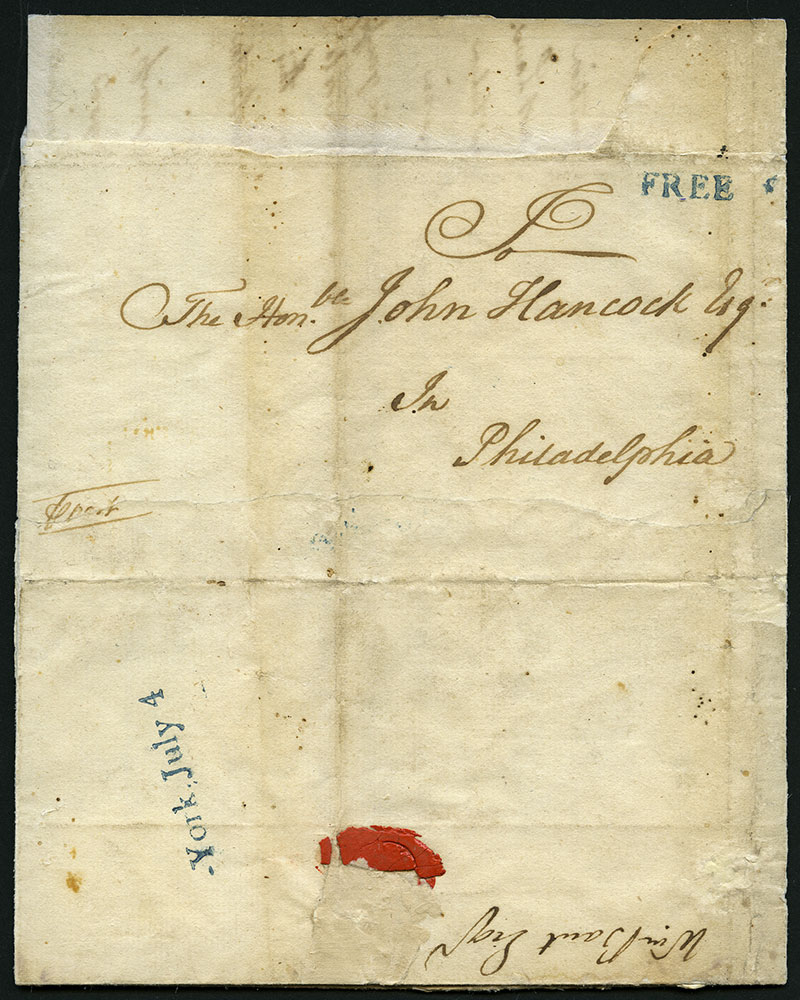 FREE
To
The Hon.ble John Hancock Esq.
In
Philadelphia
⅌ post
York. July 4
Wm Bant Esqr